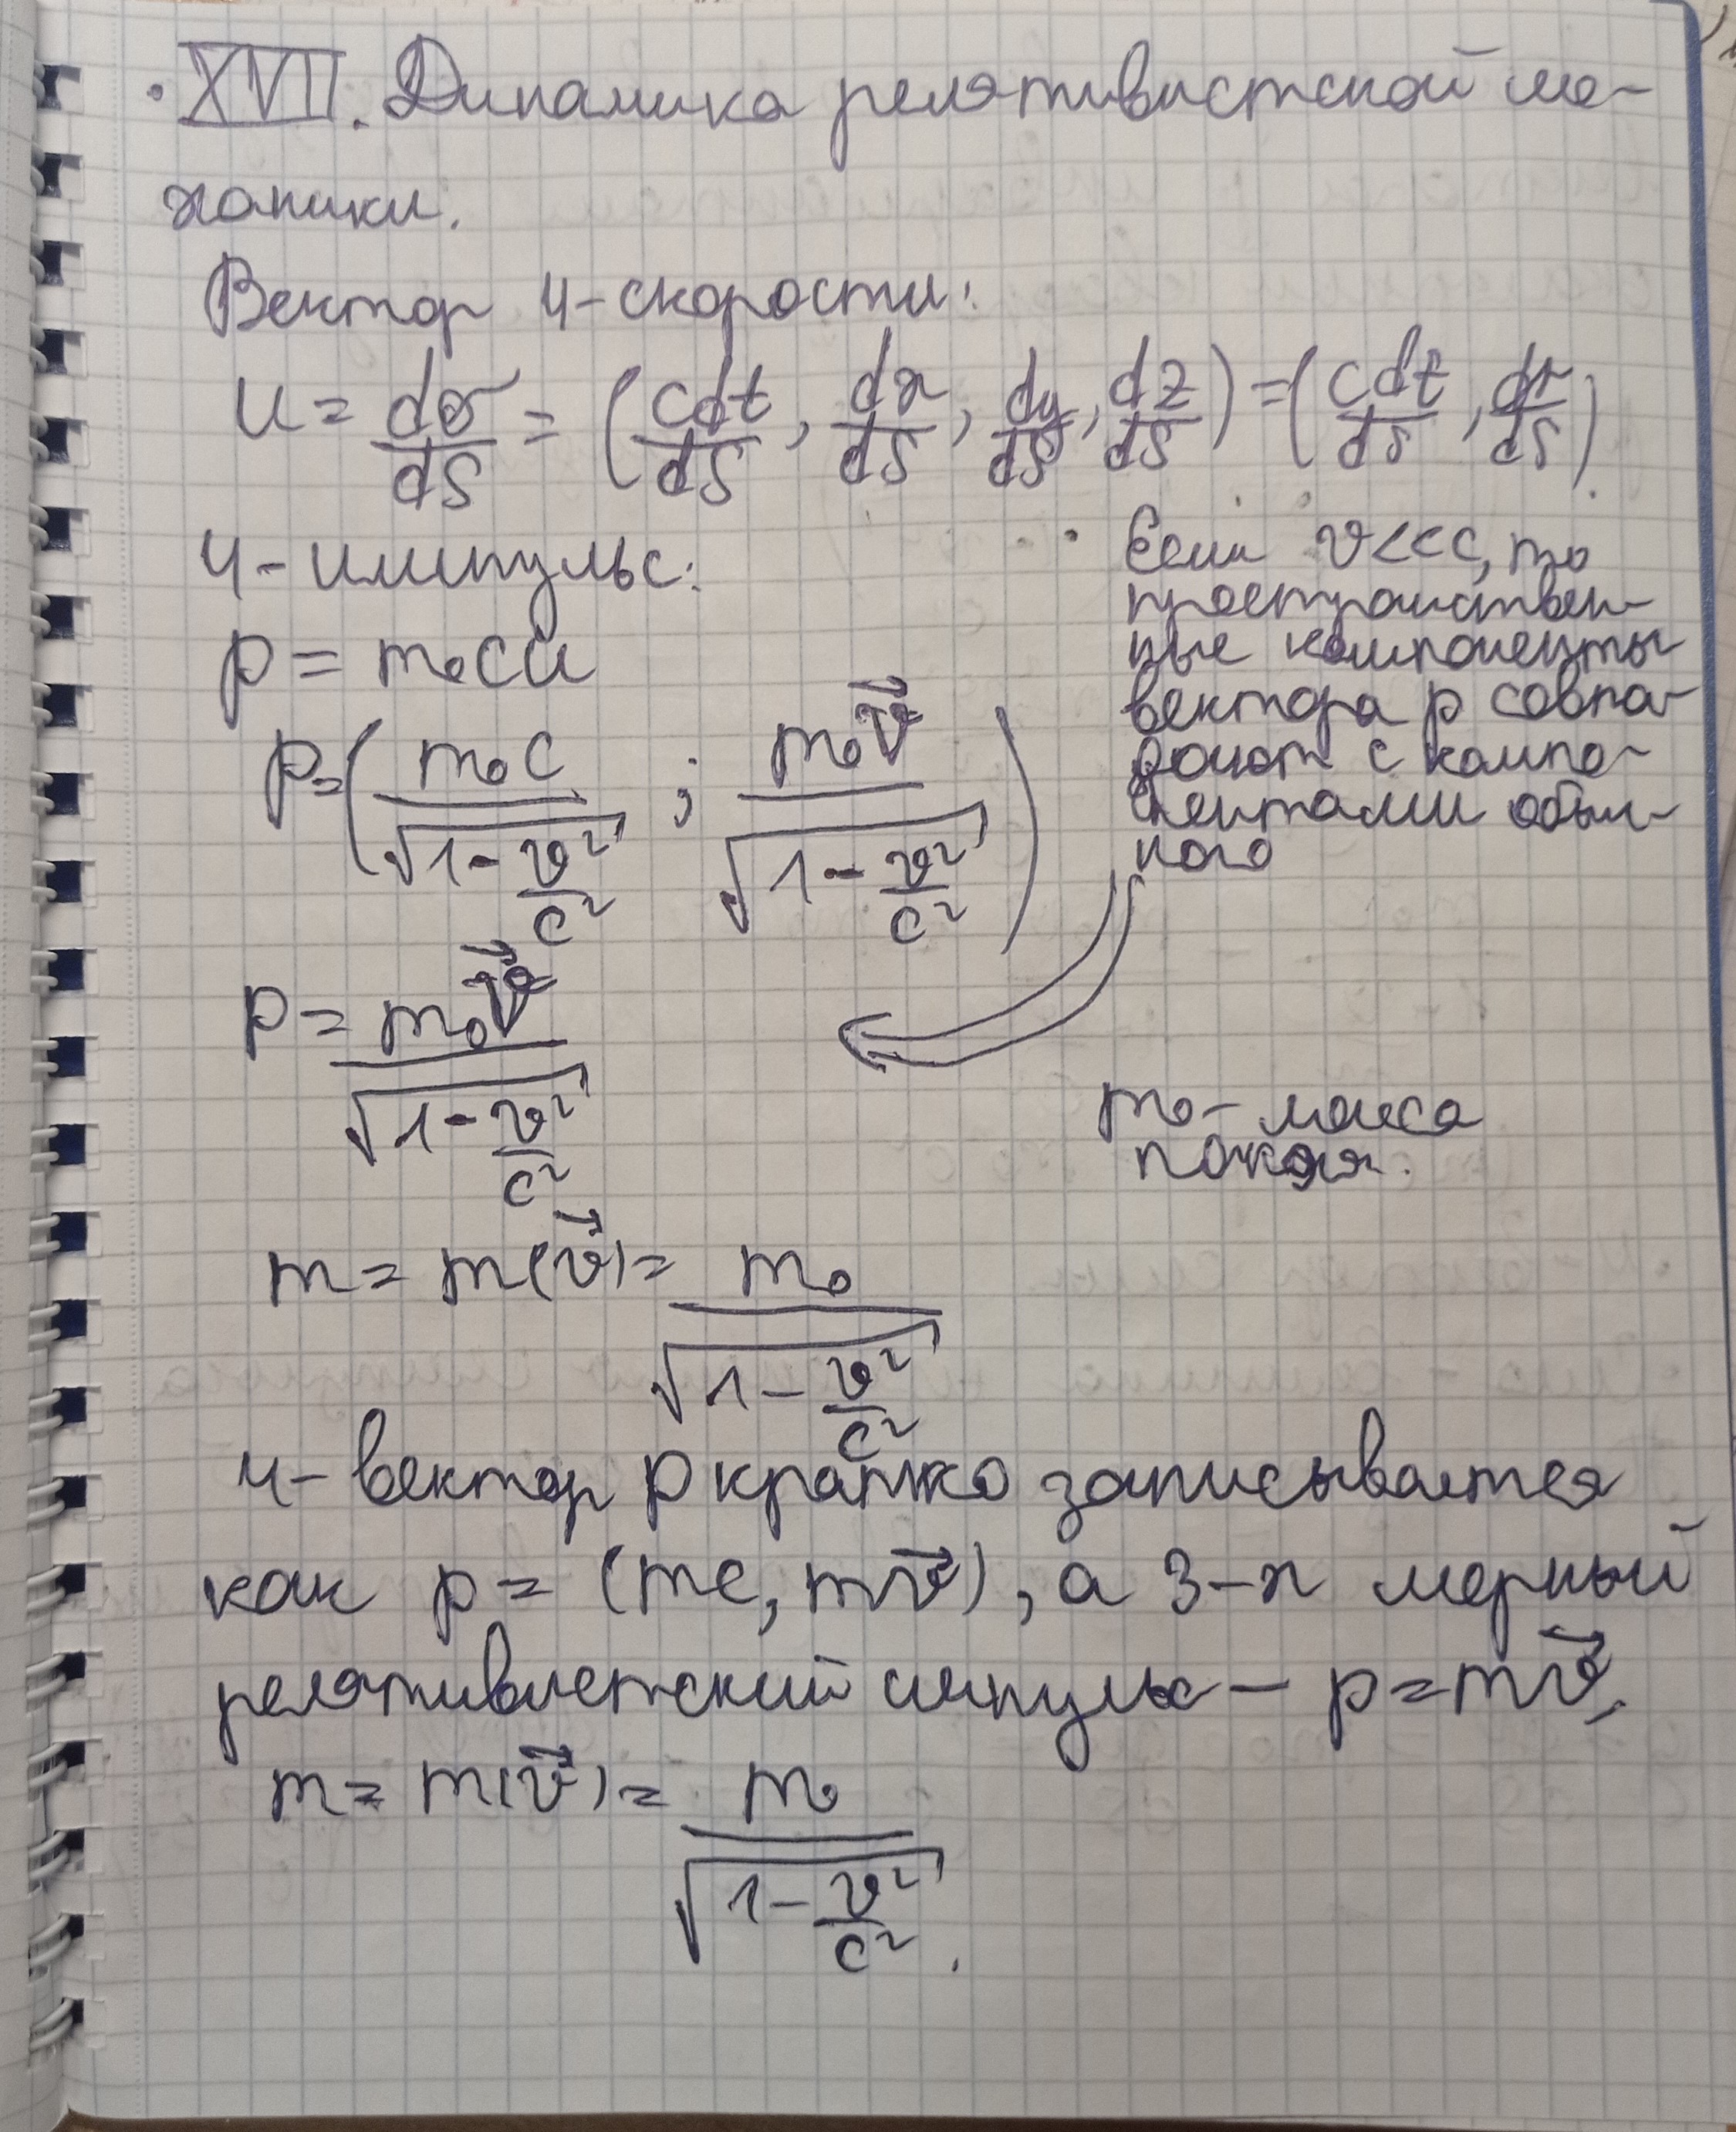 • XVII. Динамика релятивистской ме-
ханики.
Вектор 4-скорости:
u = dσ/dS = (cdt/dS, dx/dS, dy/dS, dz/dS) = (cdt/dS, dr/dS)
4-импульс:
p = m₀cu
p = (m₀c/√(1-v²/c²) ; m₀v⃗/√(1-v²/c²))
Если v<<c, то
пространствен-
ные компоненты
вектора p совпа-
дают с компо-
нентами обыч-
ного
p = m₀v⃗/√(1-v²/c²)
m₀ - масса
покоя.
m = m(v⃗) = m₀/√(1-v²/c²)
4-вектор p кратко записывается
как p = (mc, mv⃗), а 3-х мерный
релятивистский импульс - p = mv⃗,
m = m(v⃗) = m₀/√(1-v²/c²).